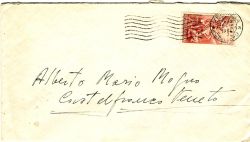 Alberto Mario Mogno
Castelfranco Veneto